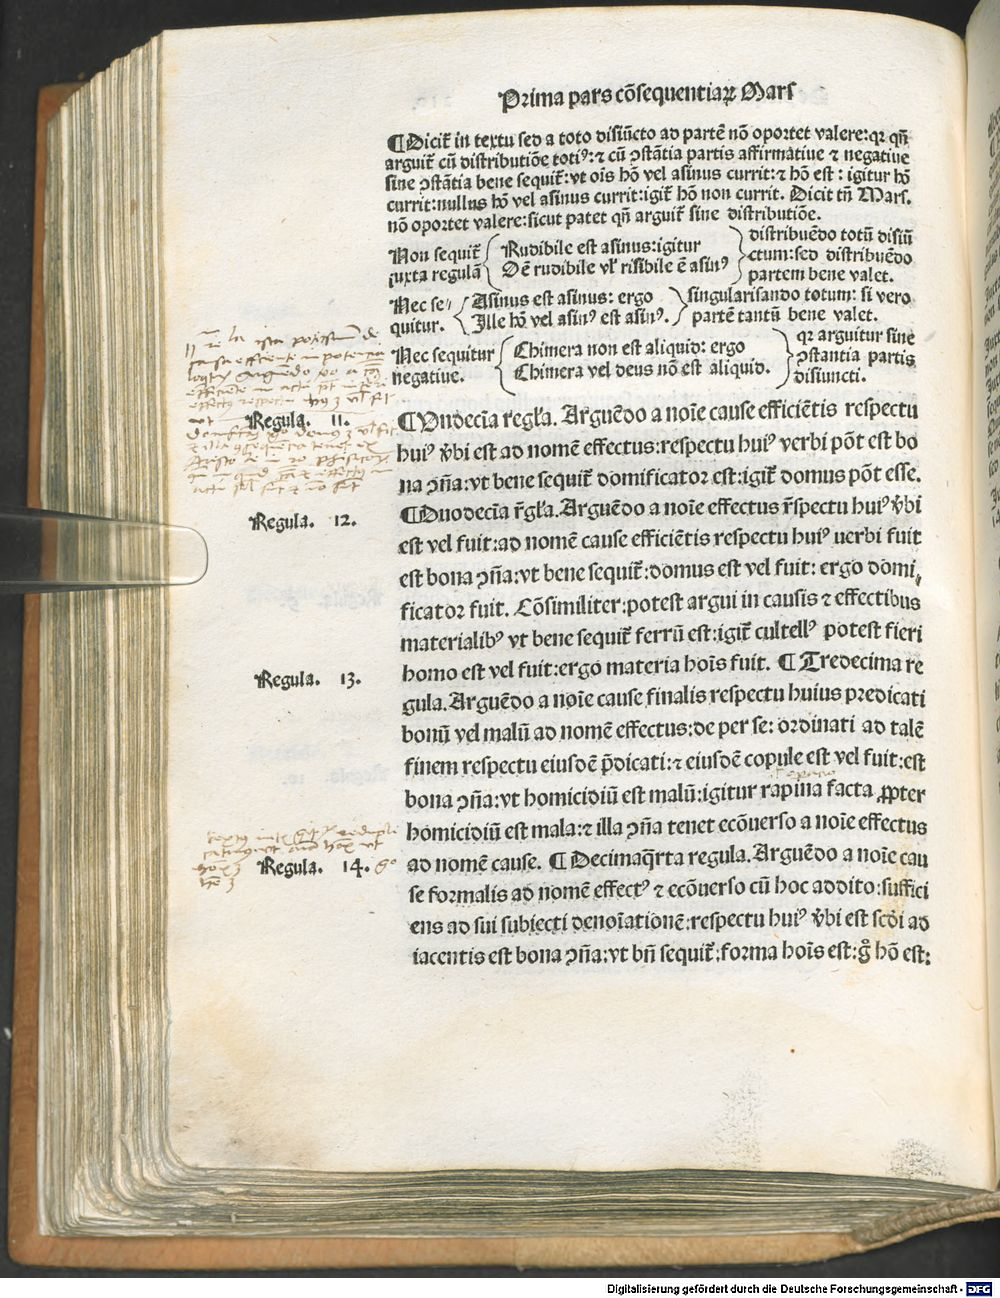 Prima pars cõsequentiaꝝ Mars
¶Dicit᷑ in textu sed a toto disiũcto ad partẽ nõ oportet valere: qꝛ qñ
arguit᷑ cũ distributiõe totiꝰ: ⁊ cũ ꝯstãtia partis affirmatiue ⁊ negatiue
sine ꝯstãtia bene sequit᷑: vt oĩs hõ vel asinus currit: ⁊ hõ est: igitur hõ
currit: nullus hõ vel asinus currit: igit᷑ hõ non currit. Dicit tñ Mars.
nõ oportet valere: sicut patet qñ arguit᷑ sine distributiõe.
Non sequit᷑ Rudibile est asinus: igitur distribuẽdo totũ disiũ
iuxta regulã Oẽ rudibile vl᷑ risibile ẽ asinꝰ ctum: sed distribuẽdo
partem bene valet.
Nec se⸗ Asinus est asinus: ergo singularisando totum: si vero
quitur. Ille hõ vel asinꝰ est asinꝰ. partẽ tantũ bene valet.
Nec sequitur Chimera non est aliquid: ergo qꝛ arguitur sine
negatiue. Chimera vel deus nõ est aliquid. ꝯstantia partis
disiuncti.
Regula. 11. ¶Undecĩa regl᷑a. Arguẽdo a noĩe cause efficiẽtis respectu
huiꝰ v̾bi est ad nomẽ effectus: respectu huiꝰ verbi põt est bo
na ꝯña: vt bene sequit᷑ domificator est: igit᷑ domus põt esse.
Regula. 12. ¶Duodecĩa r̃gl᷑a. Arguẽdo a noĩe effectus r̃spectu huiꝰ v̾bi
est vel fuit: ad nomẽ cause efficiẽtis respectu huiꝰ uerbi fuit
est bona ꝯña: vt bene sequit᷑: domus est vel fuit: ergo domi⸗
ficator fuit. Cõsimiliter: potest argui in causis ⁊ effectibus
materialibꝰ vt bene sequit᷑ ferrũ est: igit᷑ cultellꝰ potest fieri
Regula. 13. homo est vel fuit: ergo materia hoĩs fuit. ¶Tredecima re
gula. Arguẽdo a noĩe cause finalis respectu huius predicati
bonũ vel malũ ad nomẽ effectus: de per se: ordinati ad talẽ
finem respectu eiusdẽ p̃dicati: ⁊ eiusdẽ copule est vel fuit: est
bona ꝯña: vt homicidiũ est malũ: igitur rapina facta ꝓpter
homicidiũ est mala: ⁊ illa ꝯña tenet ecõuerso a noĩe effectus
Regula. 14. ad nomẽ cause. ¶Decimaq̃rta regula. Arguẽdo a noĩe cau
se formalis ad nomẽ effectꝰ ⁊ ecõuerso cũ hoc addito: suffici
ens ad sui subiecti denoĩationẽ: respectu huiꝰ v̾bi est scd̾i ad
iacentis est bona ꝯña: vt bñ sequit᷑: forma hoĩs est: gͦ hõ est:
Digitalisierung gefördert durch die Deutsche Forschungsgemeinschaft - DFG